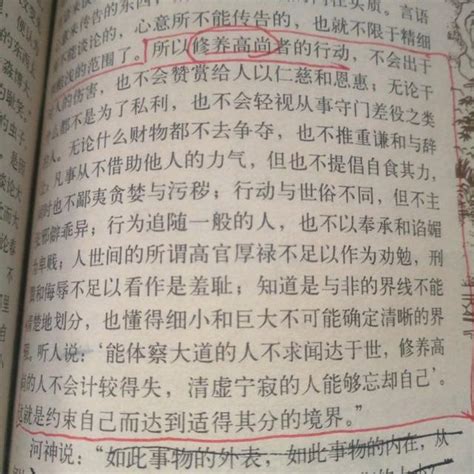 来传告的东西，
能谈论的，心意所不能传告的，也就不限于精细
的范围了。所以修养高尚者的行动，不会出于
人的伤害，也不会赞赏给人以仁慈和恩惠；无论干
么都不是为了私利，也不会轻视从事守门差役之类
人。无论什么财物都不去争夺，也不推重谦和与辞
凡事从不借助他人的力气，但也不提倡自食其力，
时也不鄙夷贪婪与污秽；行动与世俗不同，但不主
邪僻乖异；行为追随一般的人，也不以奉承和谄媚
卑贱；人世间的所谓高官厚禄不足以作为劝勉，刑
和侮辱不足以看作是羞耻；知道是与非的界线不能
楚地划分，也懂得细小和巨大不可能确定清晰的界
。听人说：‘能体察大道的人不求闻达于世，修养高
的人不会计较得失，清虚宁寂的人能够忘却自己’。
就是约束自己而达到适得其分的境界。”
河神说：“如此事物的外表，如此事物的内在，从